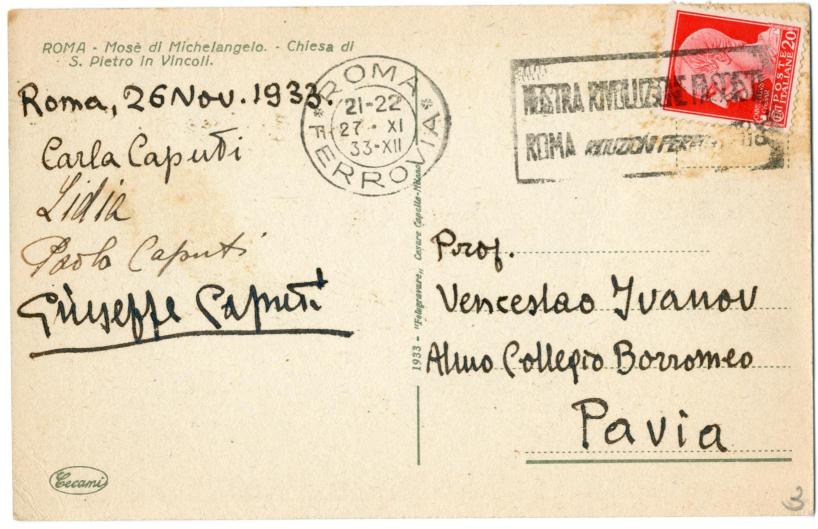 ROMA - Mosè di Michelangelo. - Chiesa di
S. Pietro in Vincoli.
Roma, 26 Nov. 1933.
Carla Caputi
Lidia
Paolo Caputi
Giuseppe Caputi
*ROMA*
21-22
27 · XI
33-XII
FERROVIA
MOSTRA RIVOLUZIONE FASCISTA
ROMA RIDUZIONI FERR
POSTE
ITALIANE
20
1933 - "Fotogravure" Cesare Capello-Milano
Prof.
Venceslao Ivanov
Almo Collegio Borromeo
Pavia
Cecami
3